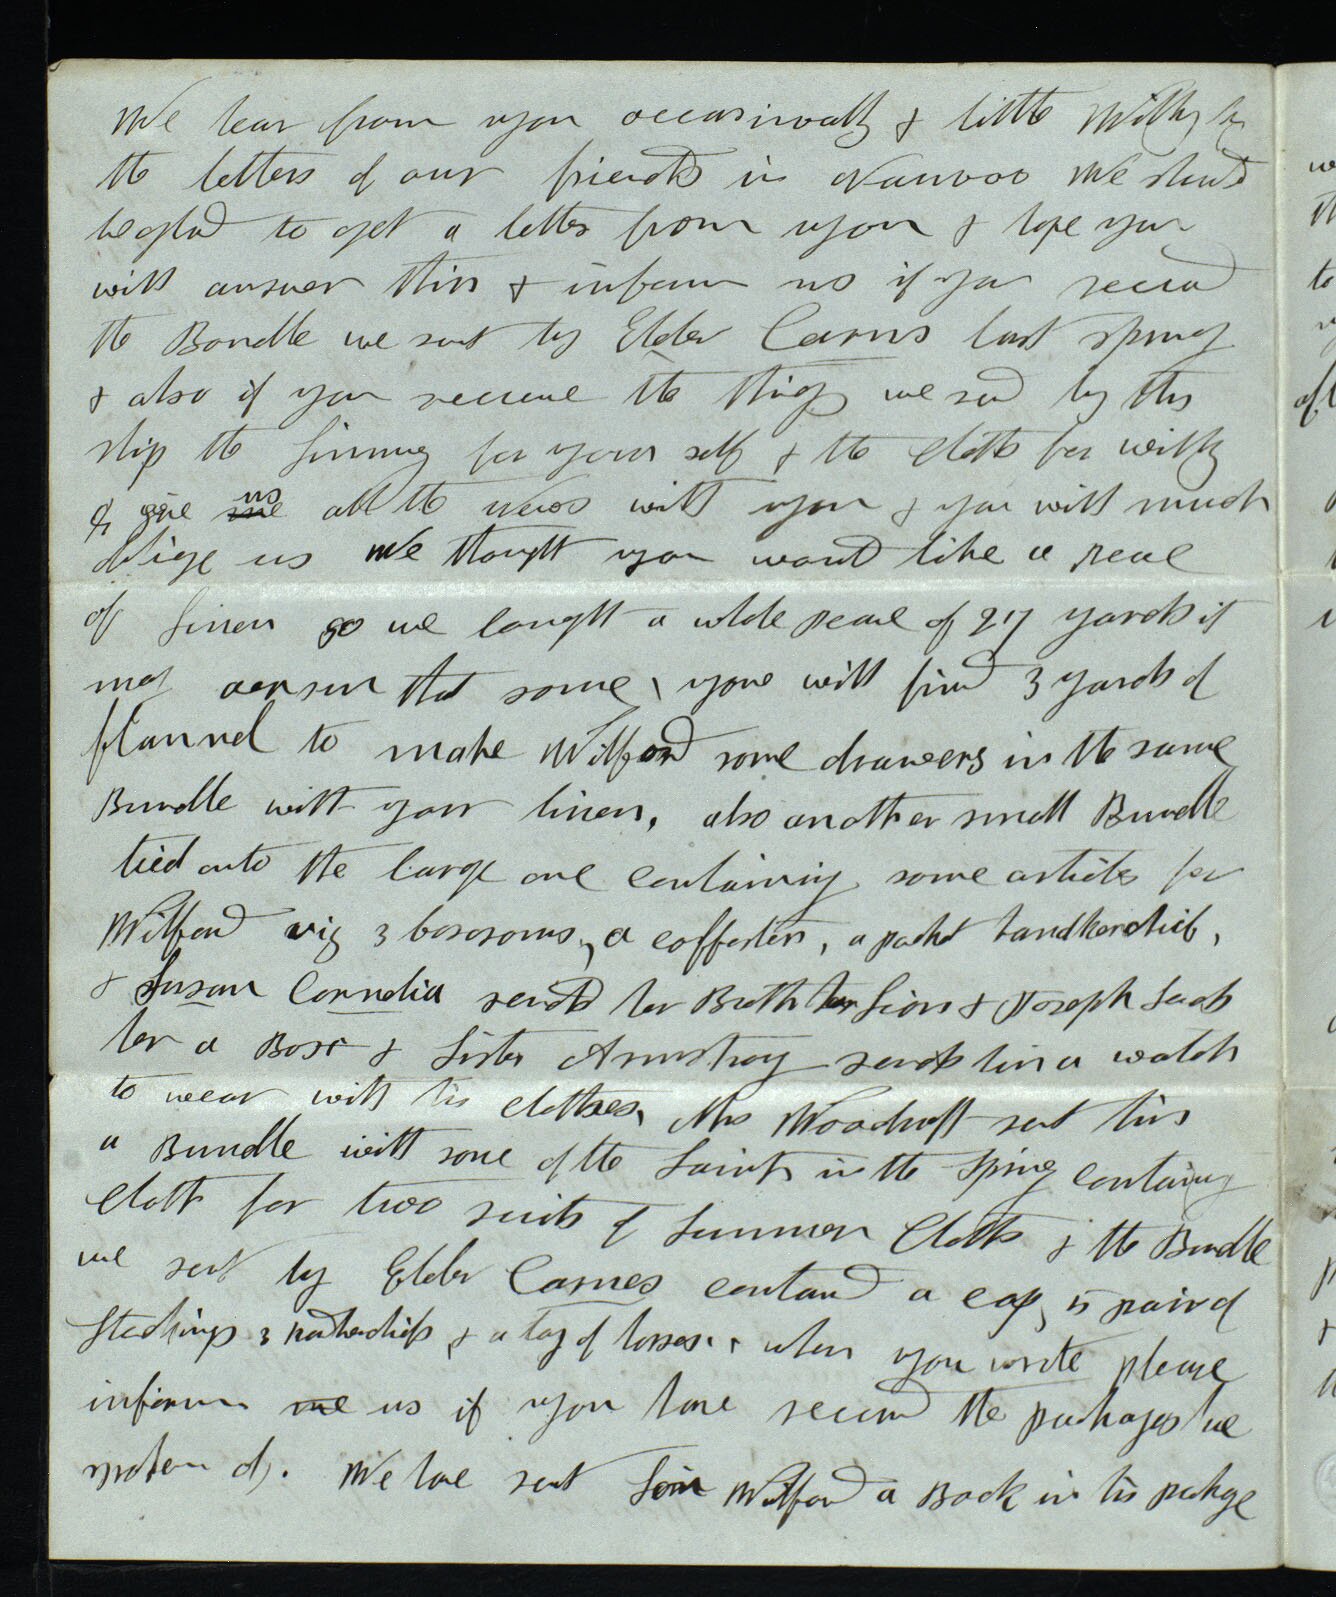 We hear from you occasionally & little Willy by
the letters of our friends in Nauvoo We should
be glad to get a letter from you & hope you
will answer this & inform us if you receivd
the Bundle we sent by Elder Carns last spring
& also if you receieve the things we send by this
ship the linnung for your self & the cloth for willy
& give me us all the News with you & you will much
oblige us We thought you would like a peace
of linen so we bought a whole peace of 27 yards it
may the some, you will find 3 yards of
flannel to make Wilford some drawers in the same
Bundle with your linen, also another small Bundle
tied onto the large one containing some articles for
Wilford viz 3 bososoms, a , a pocket handkerchief,
& Susan Cornelia sends her Brother Lion & Joseph sends
her a Box & Sister Armstrong sends him a watch
to wear with his clothes, Mrs Woodruff sent him
a Bundle with some of the Saints in the Spring containing
Cloth for two suits of Summer Cloths & the Bundle
we sent by Elder Carnes containd a cap, 5 pair of
Stockings 3 & a toy of horses. when you write please
inform me us if you have receivd the packages we
spoken of. We have sent him Wilford a Book in his package
we
th
to
y
aft